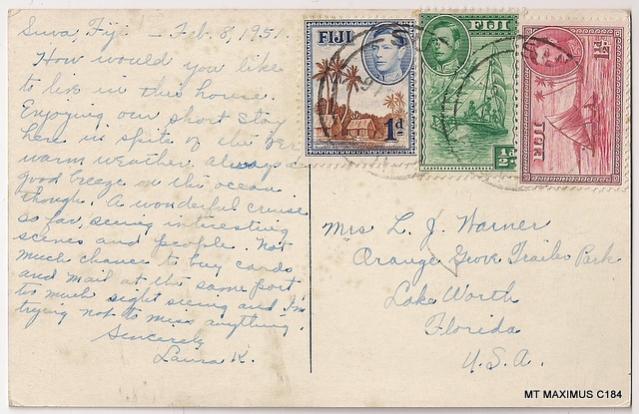 Suva, Fiji – Feb. 8, 1951.
How would you like
to live in this house.
Enjoying our short stay
here in spite of the
warm weather always a
good breeze on the ocean
though. A wonderful cruise
so far, seeing interesting
scenes and people. Not
much chance to buy cards
and mail at the same port
to much sight seeing and I'm
trying not to miss anything.
Sincerely
Laura K.
FIJI
1d
FIJI
½d
1½d
FIJI
Mrs L. J. Warner
Orange Grove Trailer Park
Lake Worth
Florida
U.S.A.
MT MAXIMUS C184